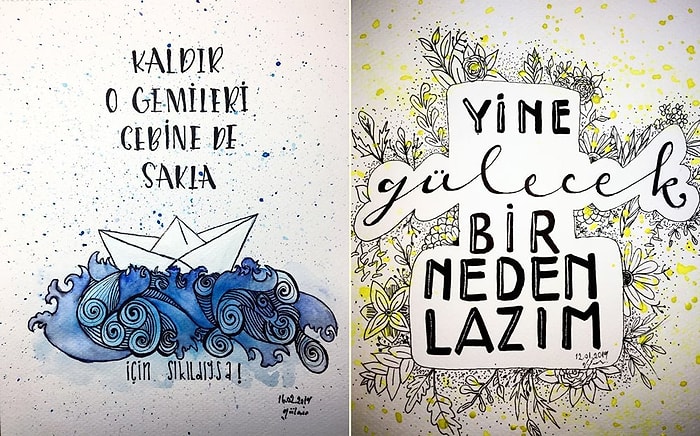 KALDIR
O GEMİLERİ
CEBİNE DE
SAKLA
için sıkıldıysa!
16.02.2019
gülnis
YİNE
gülecek
BİR
NEDEN
LAZIM
12.01.2019